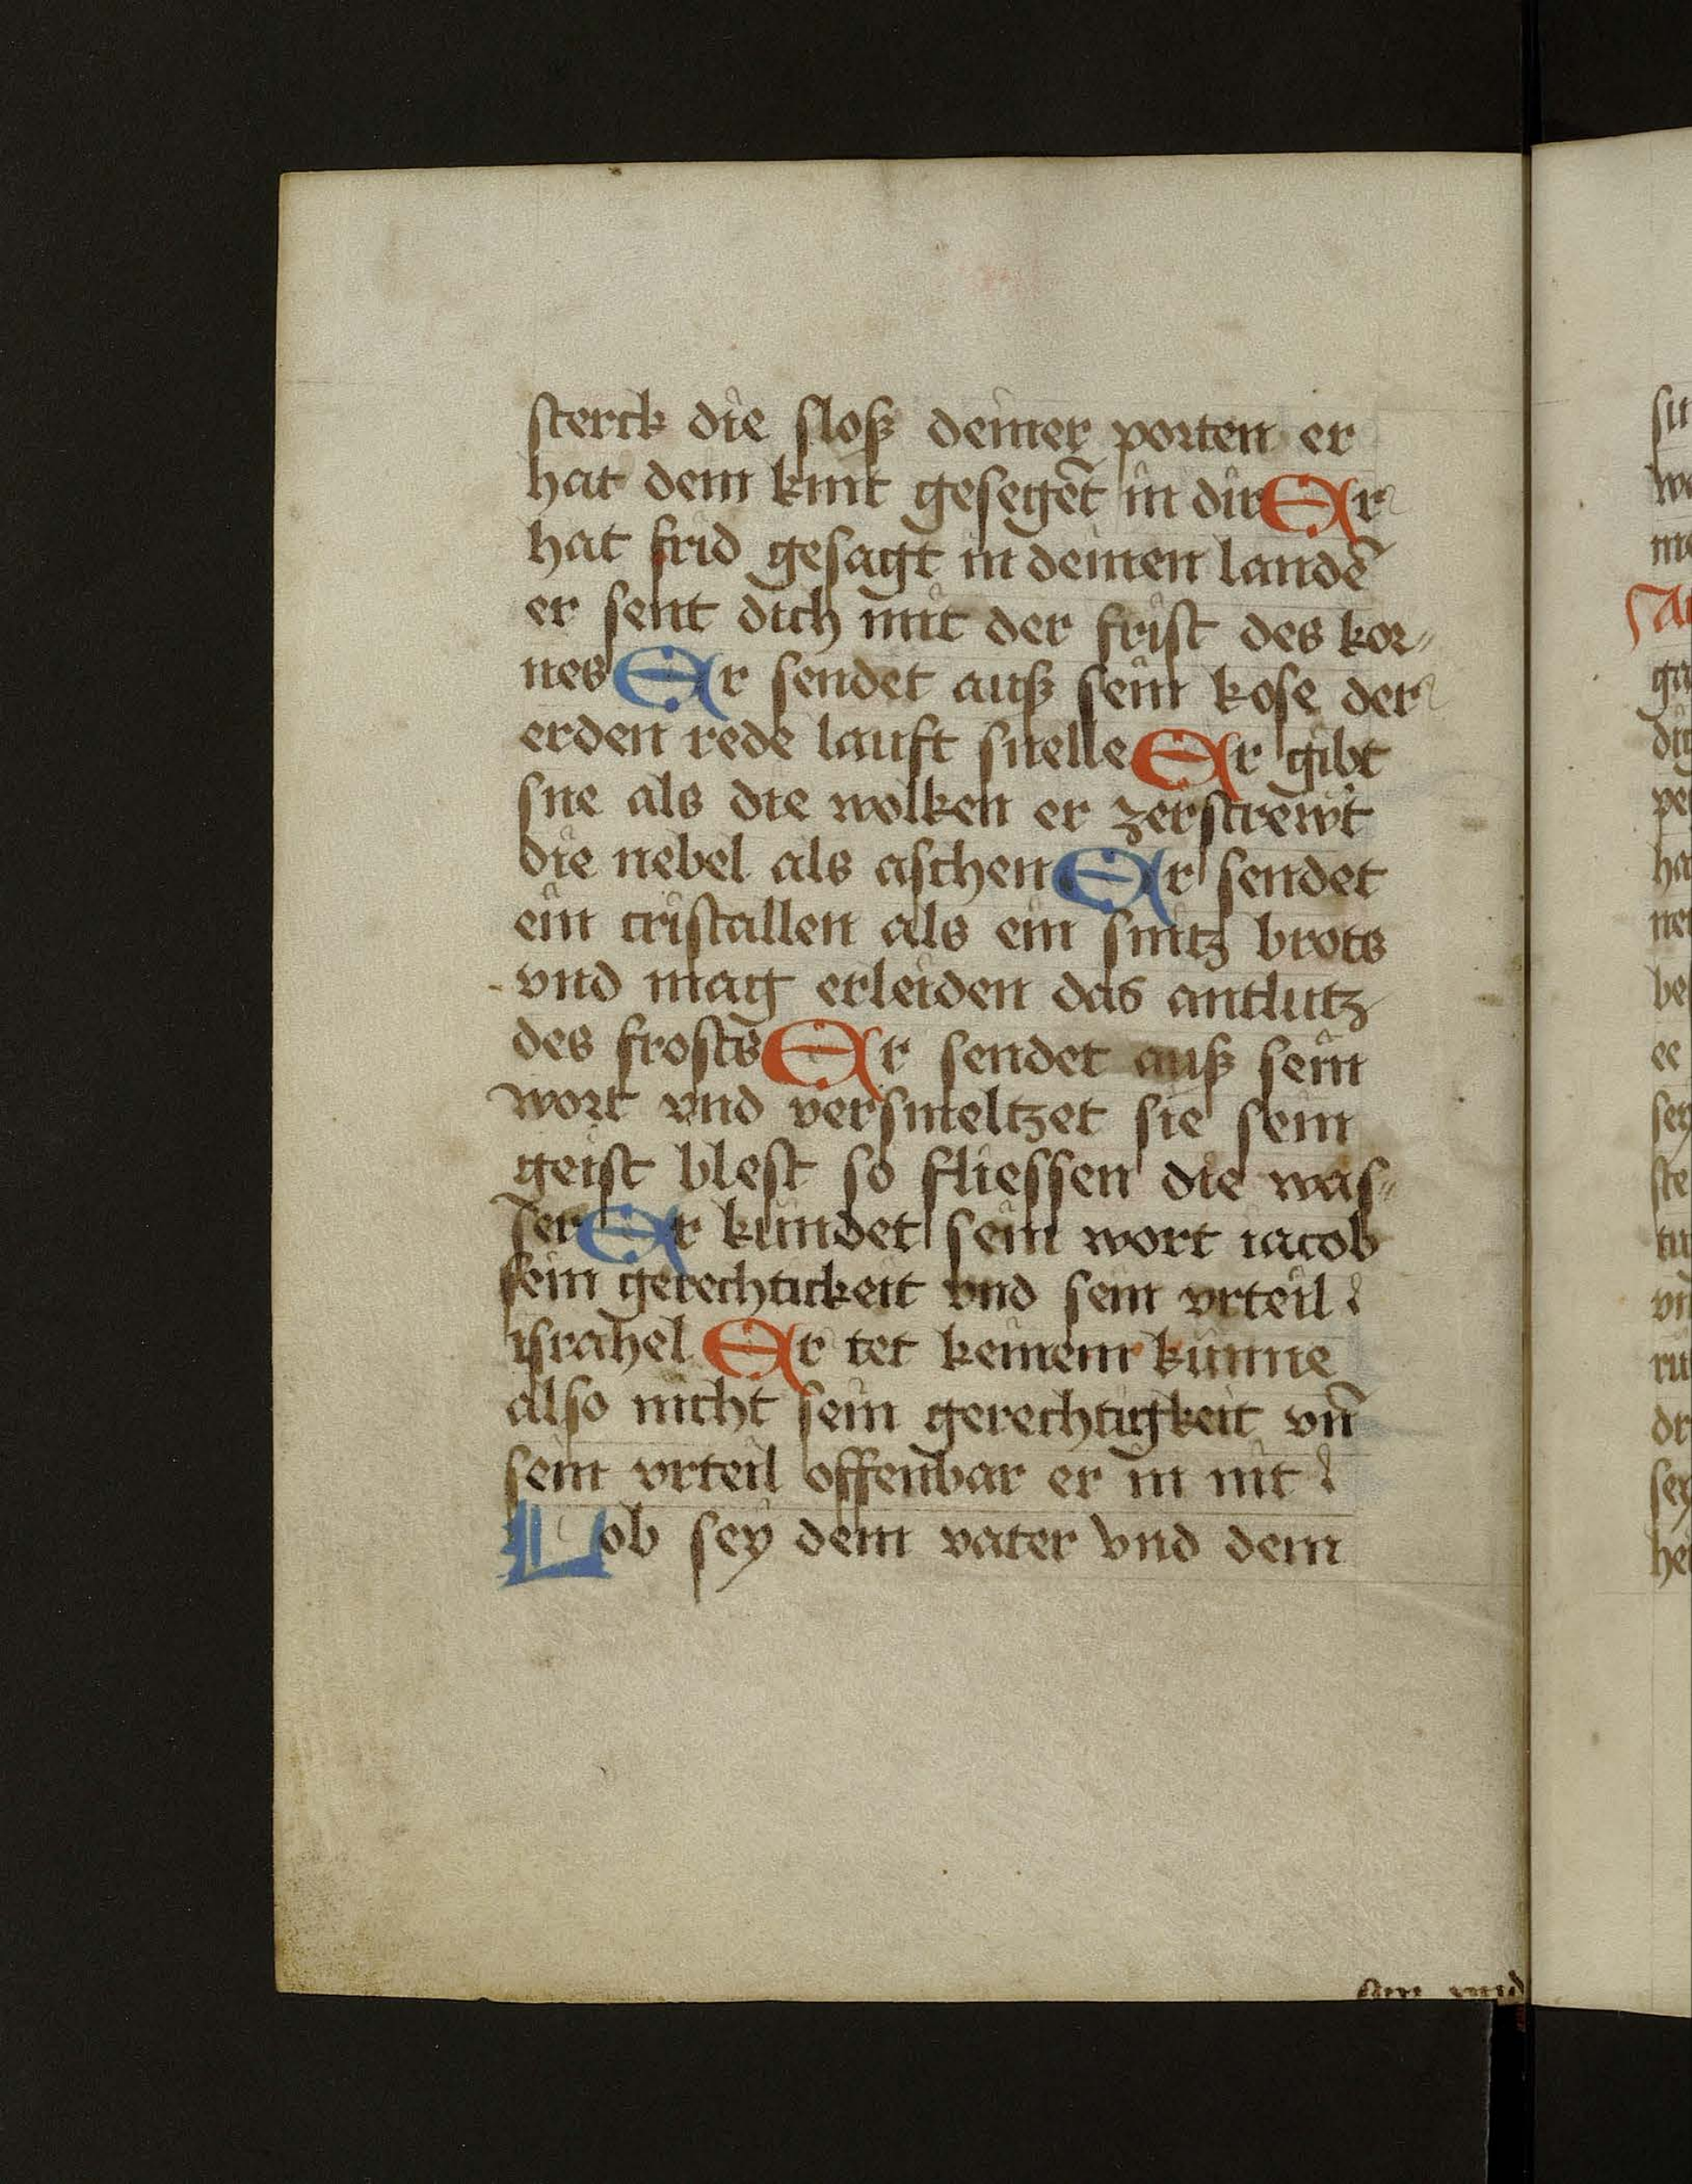 sterck die sloß deiner porten er
hat dem kint gesegēt in dir Er
hat frid gesagt in deinen landē
er sent dich mit der frist des kor〃
nes Er sendet auß sein kose der
erden rede lauft snelle Er gibt
sne als die wolken er zerstrewt
die nebel als aschen Er sendet
ein cristallen als ein snitz brots
vnd mag erleiden das antlutz
des frosts Er sendet auß sein
wort vnd versmeltzet sie sein
geist blest so fliessen die was〃
ser Er kundet sein wort iacob
sein gerechtickeit vnd sein vrteil
israhel Er tet keinem kunne
also nicht sein gerechtigkeit vn̄
sein vrteil offenbar er in nit
Lob sey dem vater vnd dem